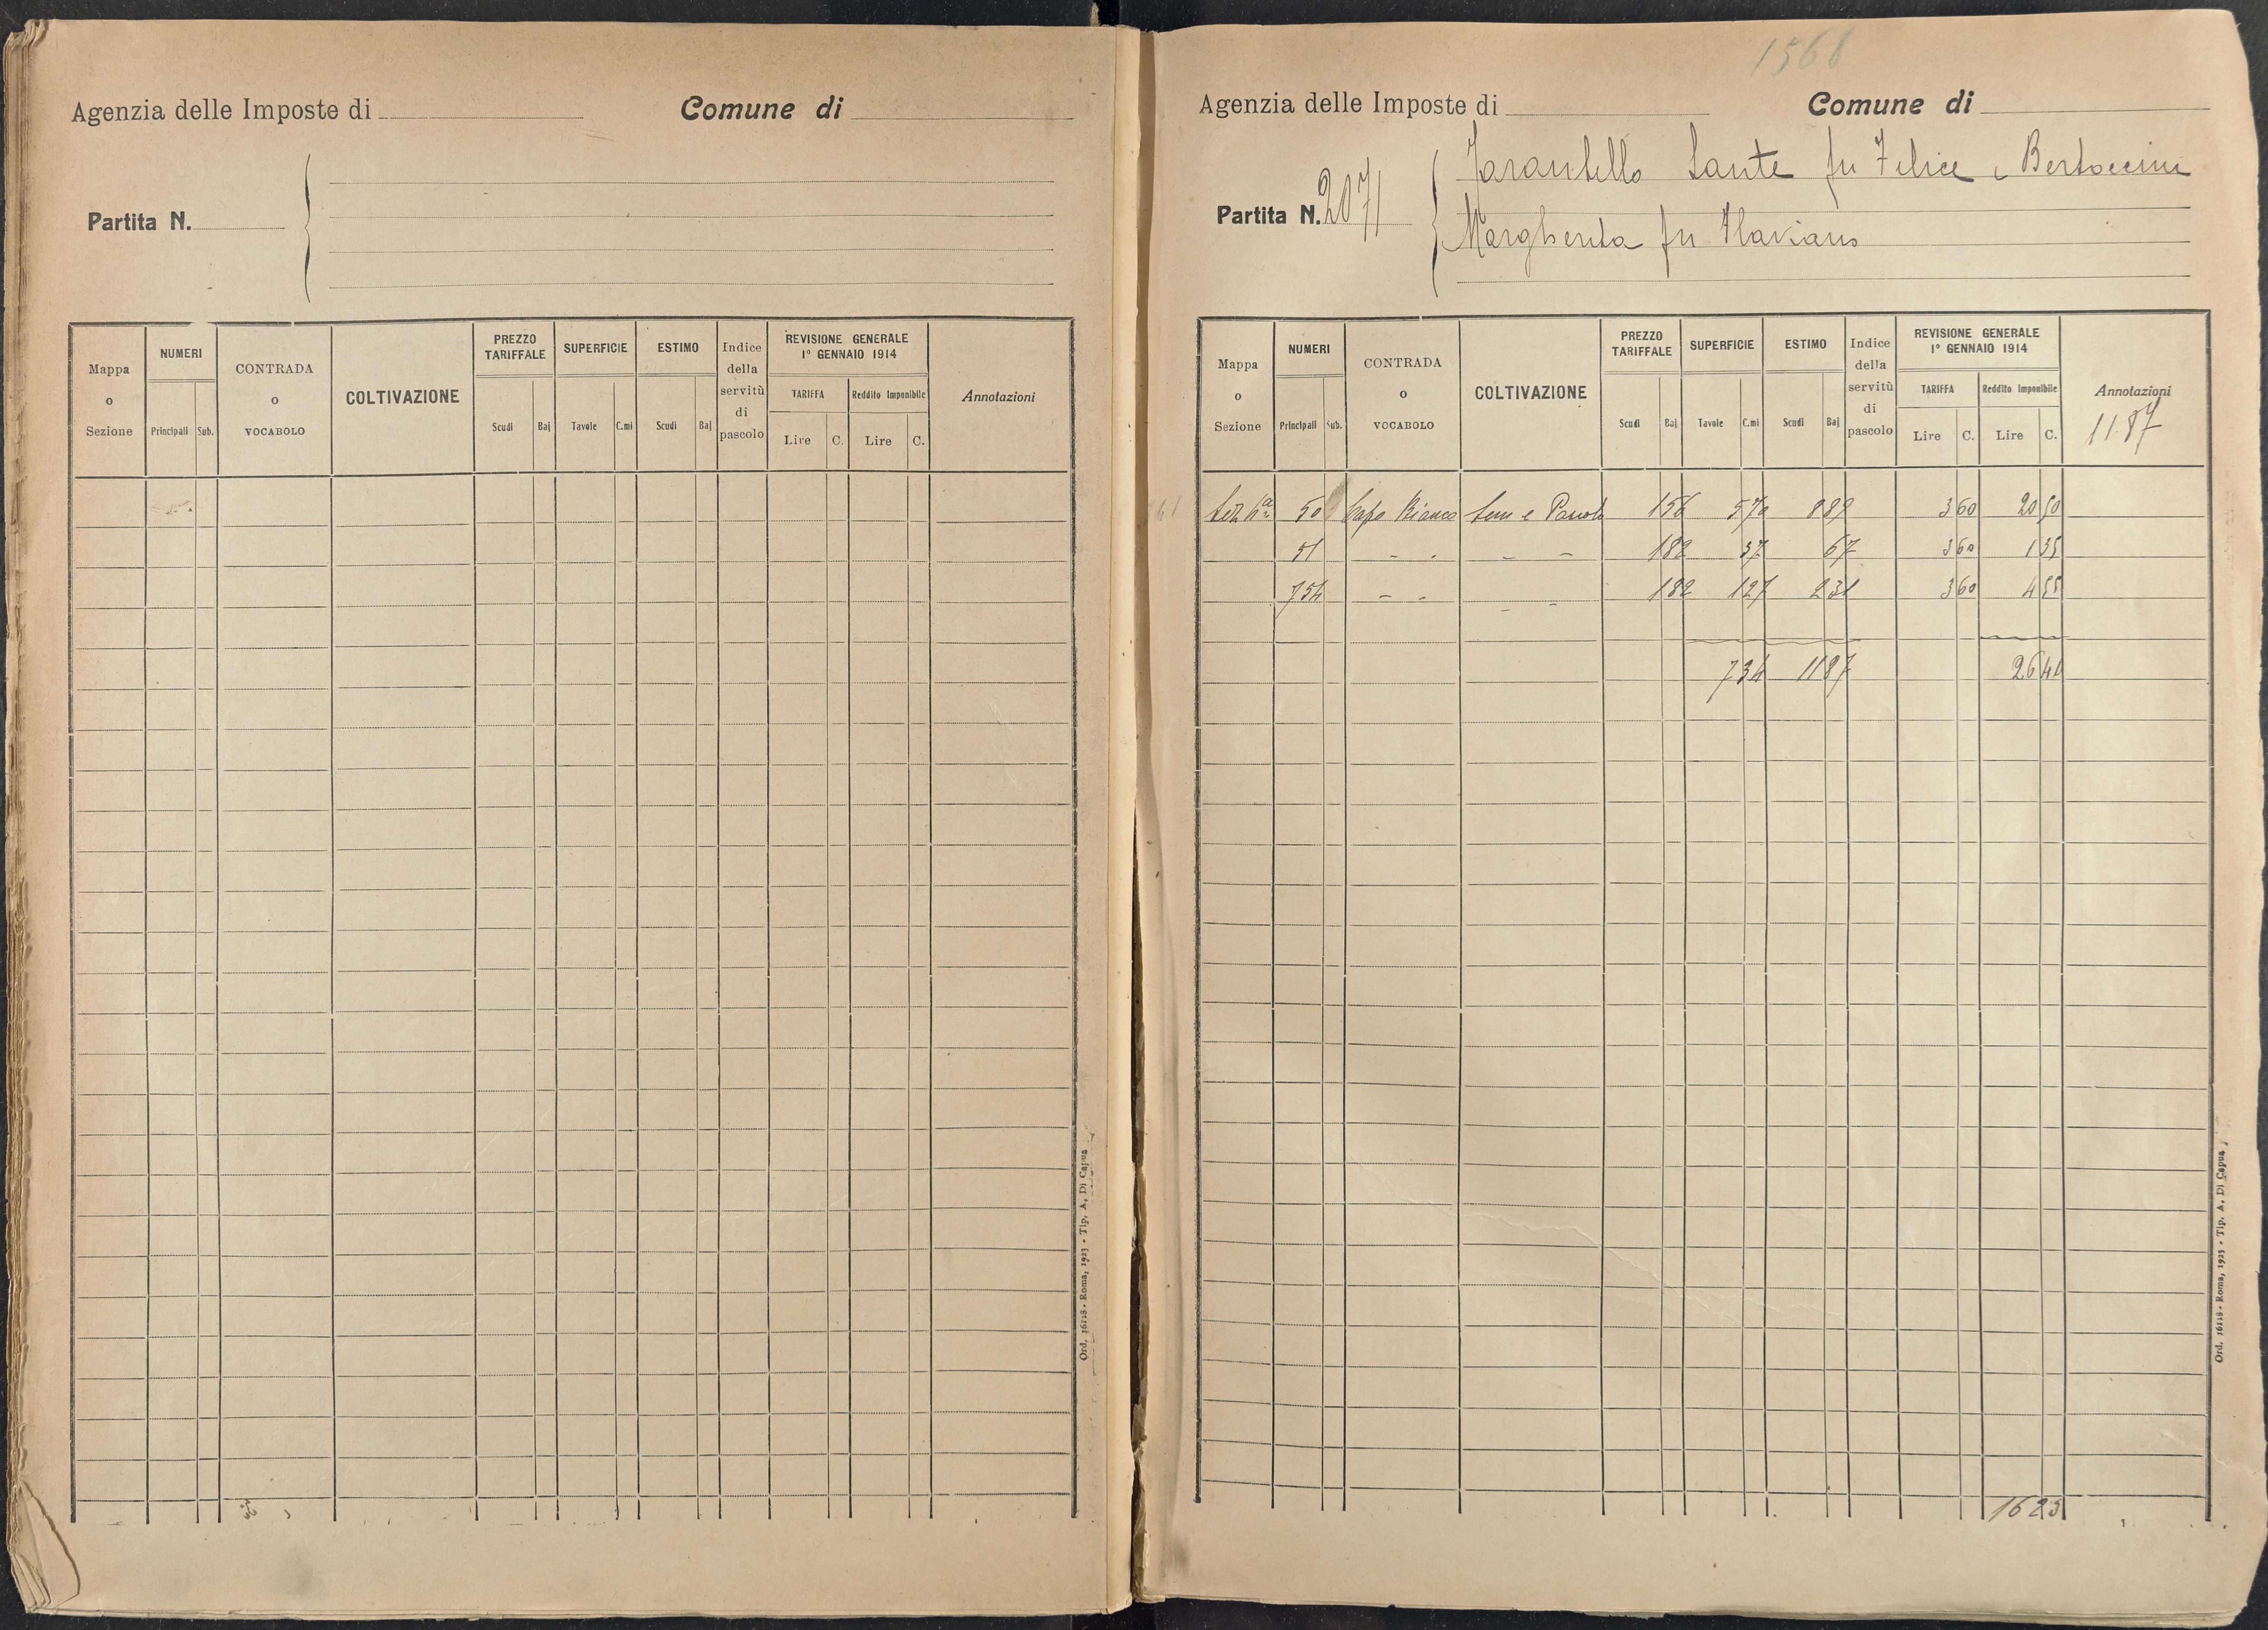 Agenzia delle Imposte di
Comune di
Partita N.
Mappa o Sezione
NUMERI
Principali
Sub.
CONTRADA o VOCABOLO
COLTIVAZIONE
PREZZO TARIFFALE
Scudi
Baj
SUPERFICIE
Tavole
C.mi
ESTIMO
Scudi
Baj
Indice della servitù di pascolo
REVISIONE GENERALE
1° GENNAIO 1914
TARIFFA
Lire
C.
Reddito Imponibile
Lire
C.
Annotazioni
Ord. 16118 - Roma, 1923 - Tip. A. Di Capua
1568
Agenzia delle Imposte di
Comune di
Partita N. 2071
Tarantello Sante fu Felice e Bertoccini
Margherita fu Flaviano
Mappa o Sezione
NUMERI
Principali
Sub.
CONTRADA o VOCABOLO
COLTIVAZIONE
PREZZO TARIFFALE
Scudi
Baj
SUPERFICIE
Tavole
C.mi
ESTIMO
Scudi
Baj
Indice della servitù di pascolo
REVISIONE GENERALE
1° GENNAIO 1914
TARIFFA
Lire
C.
Reddito Imponibile
Lire
C.
Annotazioni
1187
Sez 6ª 50 Capo Bianco Sem e Pascolo 156 570 889 3 60 20 50
51 - - - - 182 37 67 3 60 1 35
754 - - - - 182 127 231 3 60 4 55
734 1187 26 40
1623
Ord. 16118 - Roma, 1923 - Tip. A. Di Capua